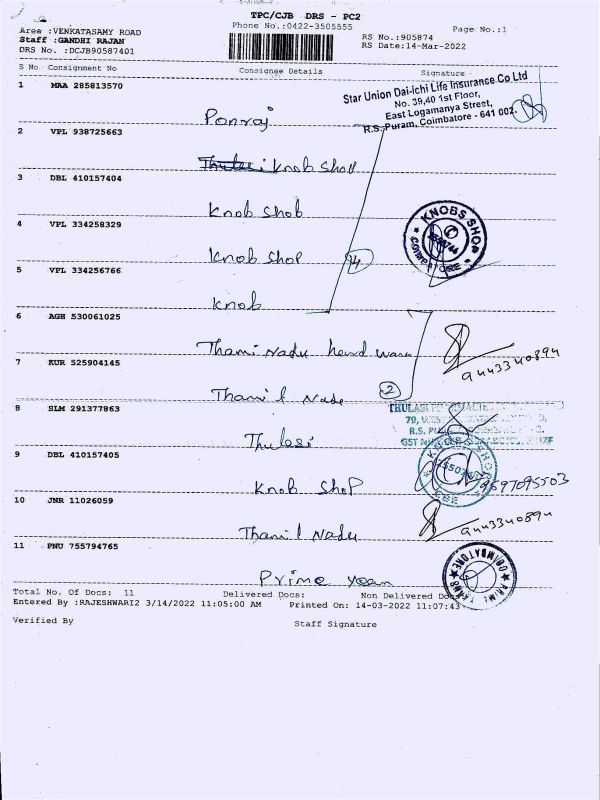 TPC/CJB DRS - PC2
Area :VENKATASAMY ROAD Phone No.:0422-3505555 Page No.:1
Staff :GANDHI RAJAN RS No.:905874
DRS No. :DCJB90587401 RS Date:14-Mar-2022
S No Consignment No Consignee Details Signature
1 MAA 285813570
Star Union Dai-ichi Life Insurance Co Ltd
No. 39,40 1st Floor,
East Logamanya Street,
R.S. Puram, Coimbatore - 641 002.
Ponraj
2 VPL 938725663
Thulasi Knob Shop
3 DBL 410157404
Knob Shob
KNOBS SHOP
4 VPL 334258329
Knob Shop 4
COIMBATORE
5 VPL 334256766
Knob
6 AGH 530061025
Thami Nadu
9443340894
7 KUR 525904145
Thamil Nadu 2
8 SLM 291377863
79,
R.S.
GST
Thulasi
9 DBL 410157405
Knob Shop
10 JNR 11026059
9443340894
Thamil Nadu
11 PNU 755794765
COIMBATORE
Prime
Total No. Of Docs: 11 Delivered Docs: Non Delivered Docs
Entered By :RAJESHWARI2 3/14/2022 11:05:00 AM Printed On: 14-03-2022 11:07:43
Verified By Staff Signature